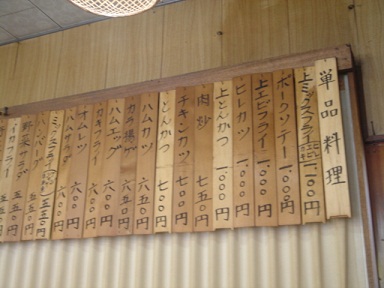 単品料理
上ミックスフライ 一、一〇〇円
ポークソテー 一、〇〇〇円
上エビフライ 一、〇〇〇円
ヒレカツ 一、〇〇〇円
上とんかつ 一、〇〇〇円
肉炒 七五〇円
チキンカツ 七〇〇円
とんかつ 七〇〇円
ハムカツ 六五〇円
カラ揚げ 六五〇円
ハムエッグ 六〇〇円
カキフライ 六〇〇円
オムレツ 六〇〇円
ハムサラダ 六〇〇円
ミックスフライ 五五〇円
ハンバーグ 五五〇円
野菜 五五〇円
イカフライ 五五〇円